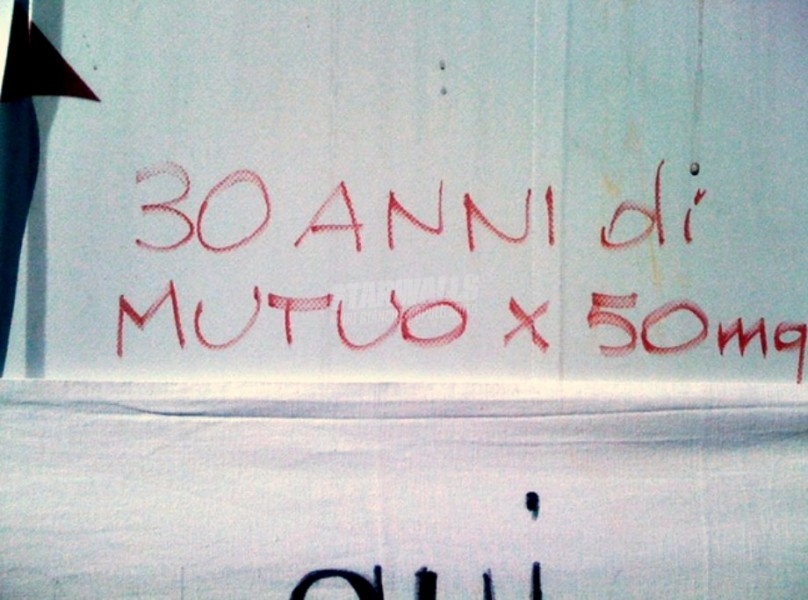 30 ANNI di
MUTUO X 50mq
qui